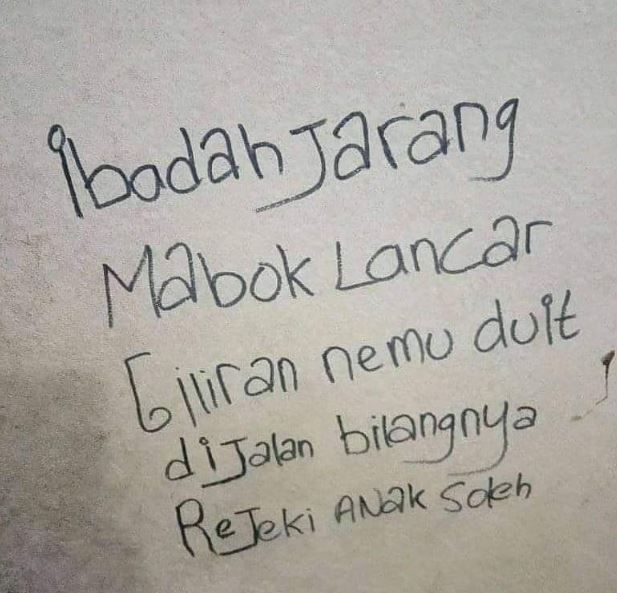 Ibadah Jarang
Mabok Lancar
Giliran nemu duit
diJalan bilangnya
ReJeki ANAK Soleh